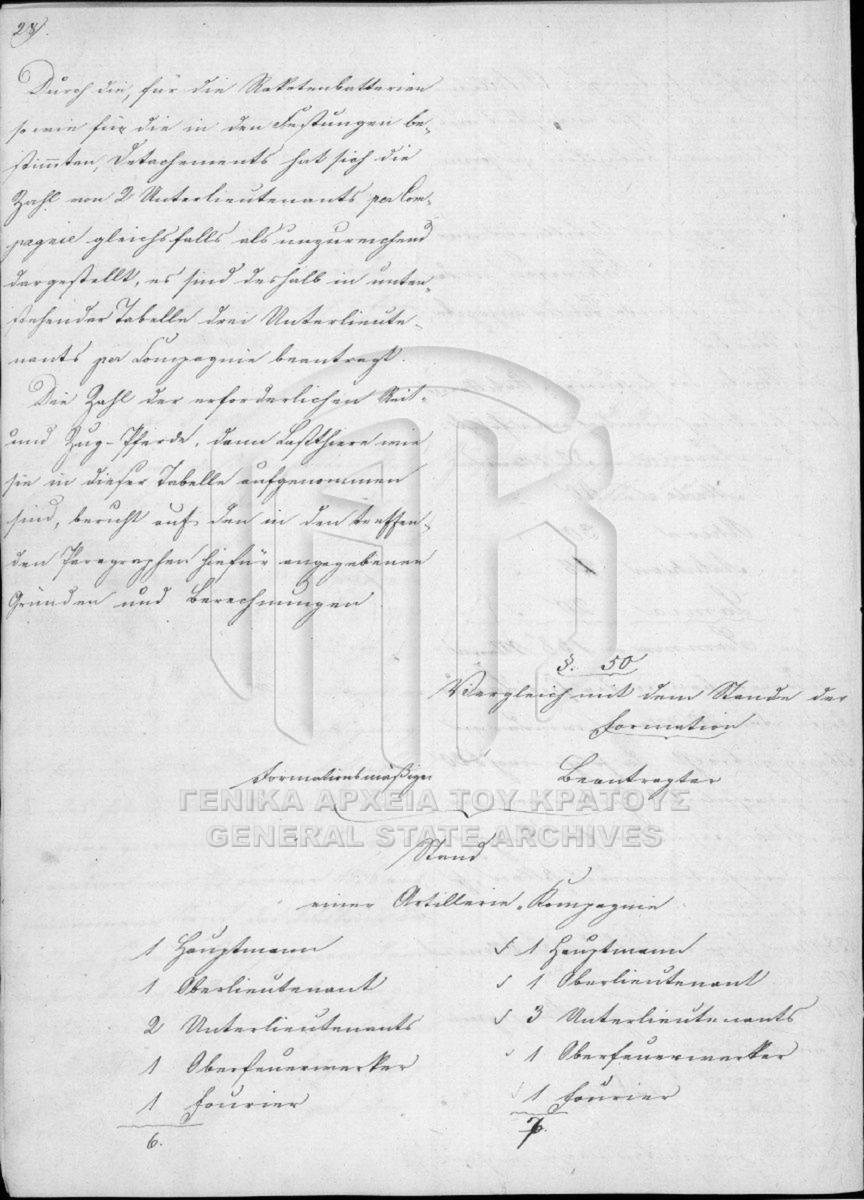 28.
Durch die, für die Raketenbatterien
so wie für die in den Festungen be-
stimmten, Detachements hat sich die
Zahl von 2 Unterlieutenants per Com-
pagnie gleichsfalls als unzureichend
dargestellt, es sind deshalb in unten-
stehender Tabelle drei Unterlieute-
nants per Compagnie beantragt.
Die Zahl der erforderlichen Reit-
und Zug-Pferde, dann Lastthiere wie
sie in dieser Tabelle aufgenommen
sind, beruht auf den in den treffen-
den Paragraphen hiefür angegebenen
Gründen und Berechnungen
§. 50
Vergleich mit dem Stande der
Formation
Formationsmäßiger Beantragter
ΓΕΝΙΚΑ ΑΡΧΕΙΑ ΤΟΥ ΚΡΑΤΟΥΣ
GENERAL STATE ARCHIVES
Stand
einer Artillerie-Kompagnie
1 Hauptmann
1 Oberlieutenant
2 Unterlieutenants
1 Oberfeuerwerker
1 Fourier
6.
1 Hauptmann
1 Oberlieutenant
3 Unterlieutenants
1 Oberfeuerwerker
1 Fourier
7.